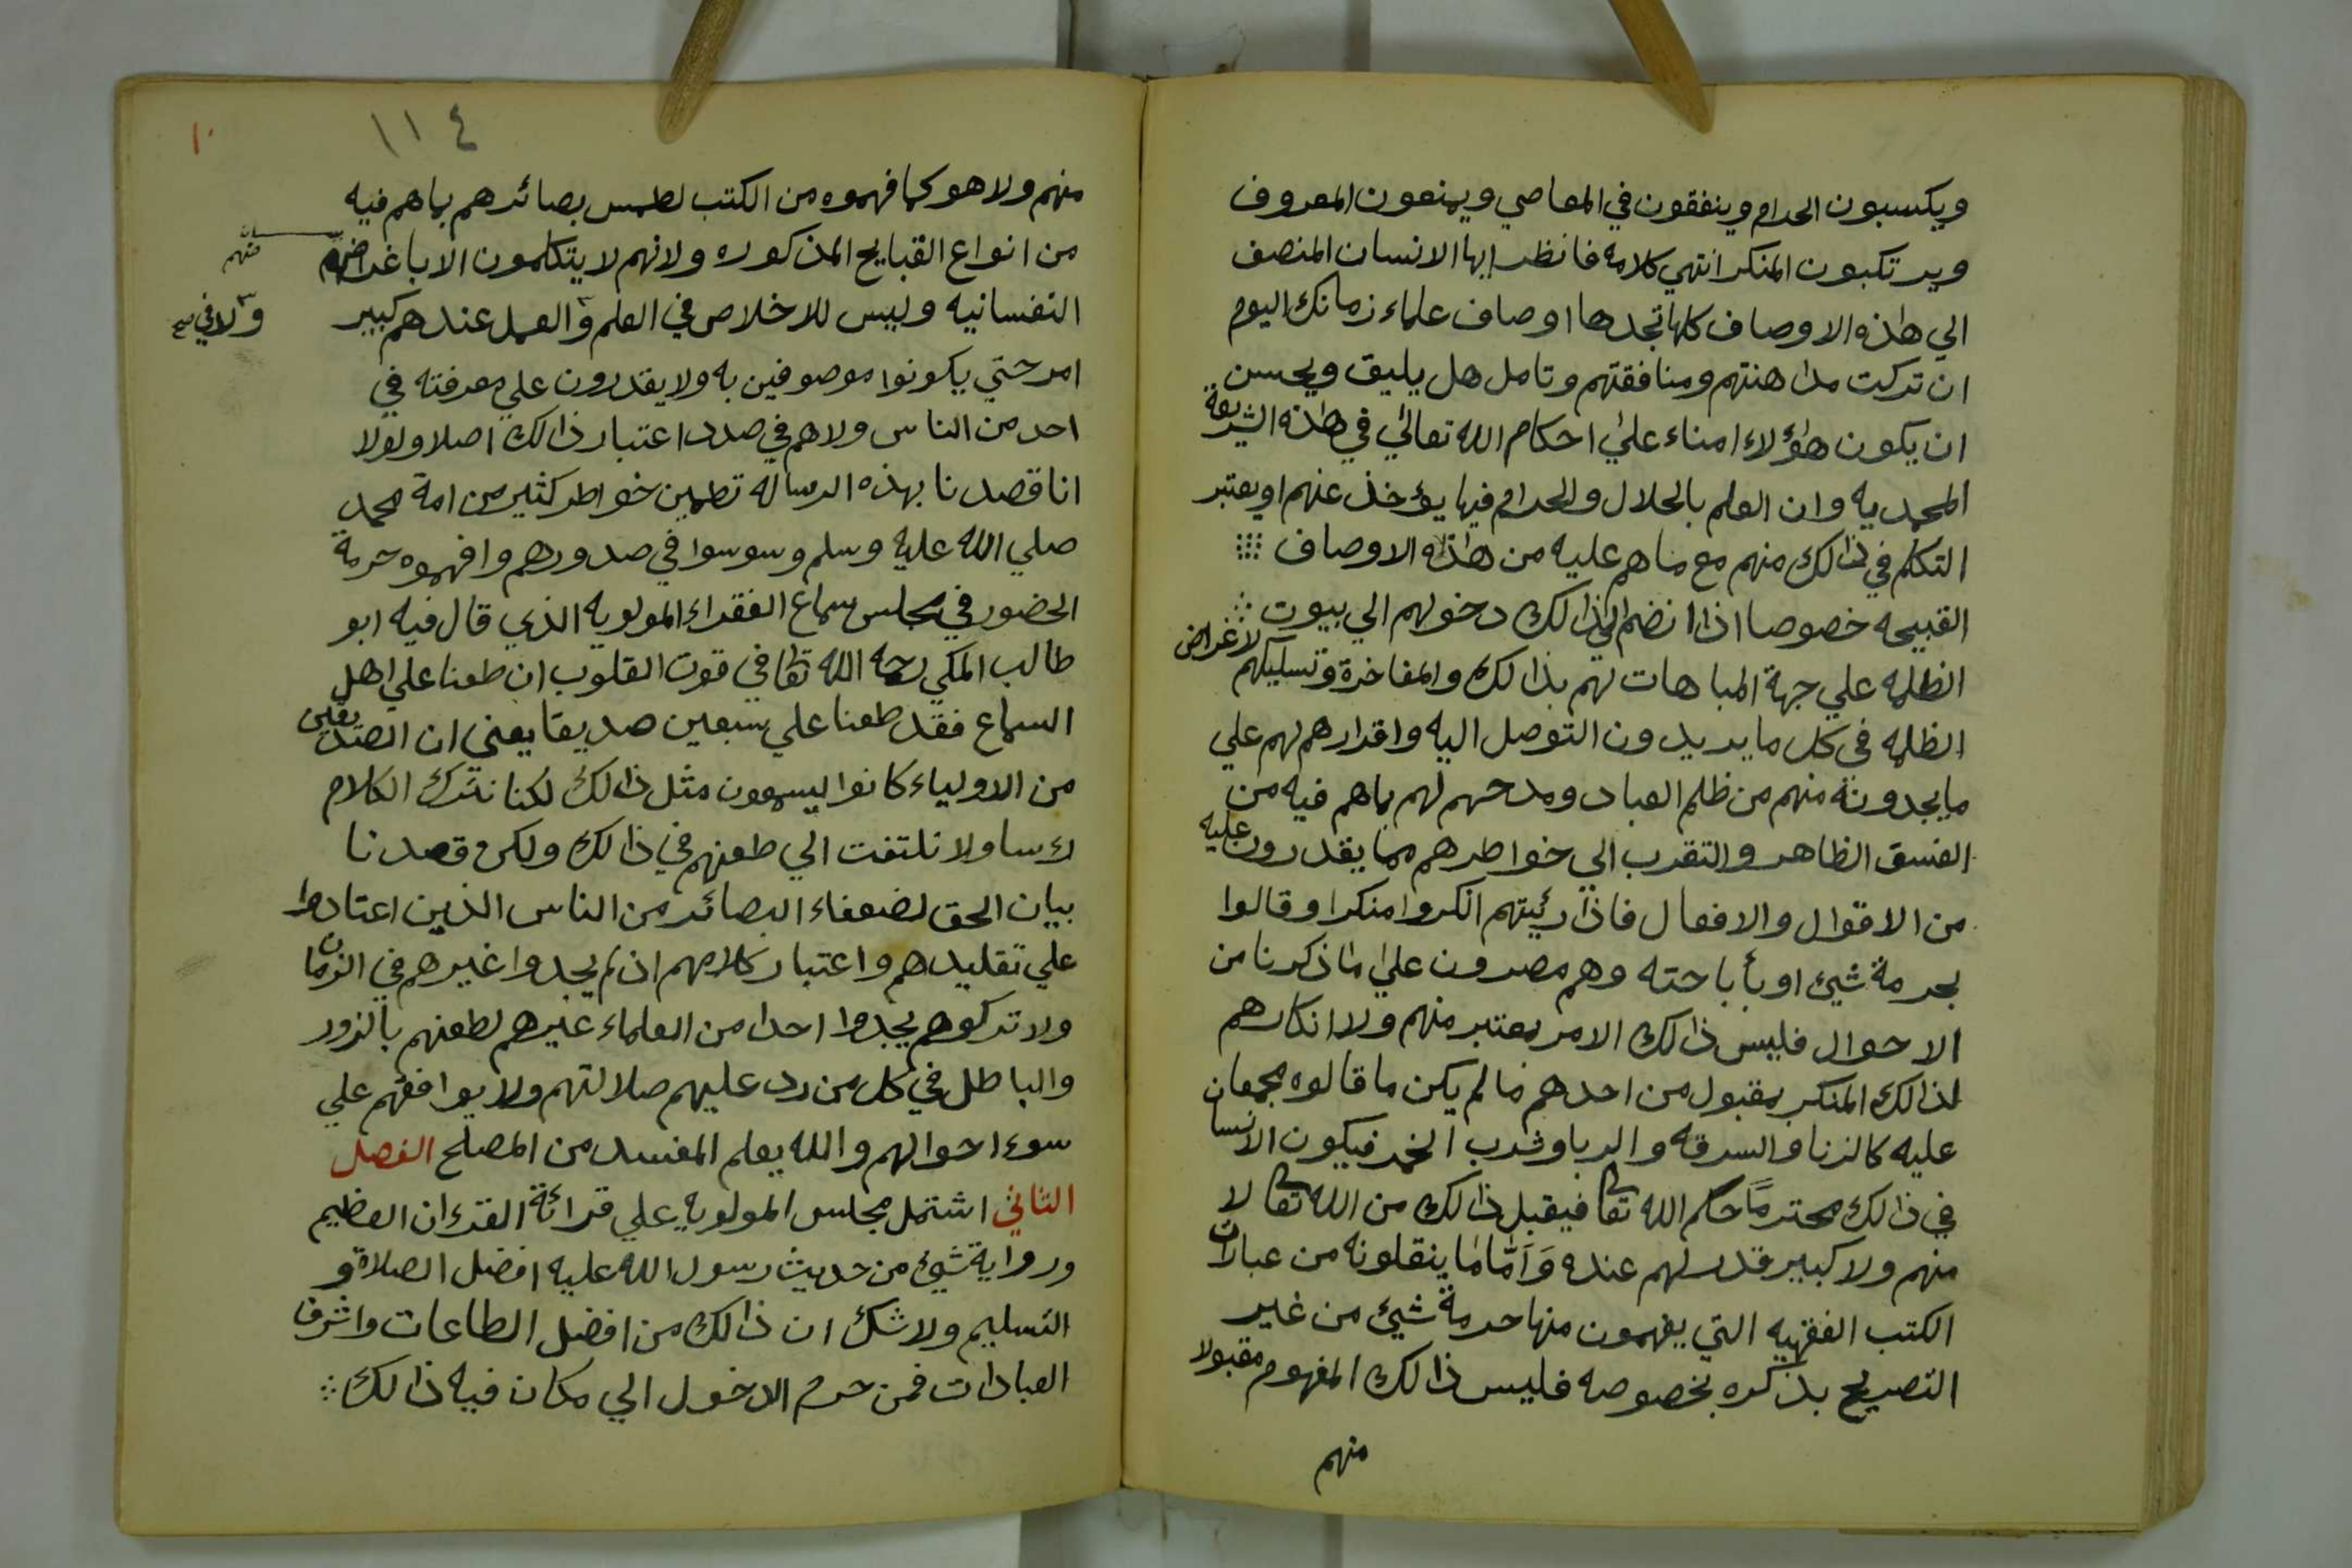 ويكسبون الحرام وينفقون في المعاصي ويمنعون المعروف
ويرتكبون المنكر انتهي كلامه فانظر ايها الانسان المنصف
الي هذه الاوصاف كلها تجدها اوصاف علماء زمانك اليوم
ان تركت مداهنتهم ومنافقتهم وتامل هل يليق ويحسن
ان يكون هؤلاء امناء علي احكام الله تعالي في هذه الشريعة
المحمديه وان العلم بالحلال والحرام فيها يؤخذ عنهم او يعتبر
التكلم في ذالك منهم مع ما هم عليه من هذه الاوصاف
القبيحه خصوصا اذا انضم الي ذالك دخولهم الي بيوت
الظلمه علي جهة المباهات لهم بذالك والمفاخرة وتسليكهم لاغراض
الظلمه في كل ما يريدون التوصل اليه واقرارهم لهم علي
ما يجدونه منهم من ظلم العباد ومدحهم لهم بما هم فيه من
الفسق الظاهر والتقرب الي خواطرهم مما يقدرون عليه
من الاقوال والافعال فاذا رئيتهم انكروا منكرا وقالوا
بحرمة شيئ او بأباحته وهم مصرون علي ما ذكرنا من
الاحوال فليس ذالك الامر بمعتبر منهم ولا انكارهم
لذالك المنكر بمقبول من احدهم ما لم يكن ما قالوه مجمعا
عليه كالزنا والسرقه والربا وشرب الخمر فيكون الانسا
في ذالك محترماً حكم الله تعا فيقبل ذالك من الله تعا لا
منهم ولا كبير قدر لهم عنده وَاَمّا ما ينقلونه من عبارات
الكتب الفقهيه التي يفهمون منها حرمة شيئ من غير
التصريح بذكره بخصوصه فليس ذالك المفهوم مقبولا
منهم
١١٤
١٠
منهم ولا هو كما فهموه من الكتب لطمس بصائرهم بما هم فيه
من انواع القبايح المذكوره ولانهم لا يتكلمون الا باغراضهم
منهم
النفسانيه وليس للاخلاص في العلم والعمل عندهم كبير
ولا في
امر حتي يكونوا موصوفين به ولا يقدرون علي معرفته في
احد من الناس ولا هم في صدد اعتبار ذالك اصلا ولولا
انا قصدنا بهذه الرساله تطمين خواطر كثير من امة محمد
صلي الله عليه وسلم وسوسوا في صدورهم وافهموه حرمة
الحضور في مجلس سماع الفقراء المولويه الذي قال فيه ابو
طالب المكي رحمه الله تعا في قوت القلوب ان طعنا علي اهل
السماع فقد طعنا علي سبعين صديقا يعني ان الصديقين
من الاولياء كانوا يسمعون مثل ذالك لكنا نترك الكلام
راسا ولا نلتفت الي طعنهم في ذالك ولكن قصدنا
بيان الحق لضعفاء البصائر من الناس الذين اعتادوا
علي تقليدهم واعتبار كلامهم ان لم يجدوا غيرهم في الزمان
ولا تركوهم يجدوا احدا من العلماء غيرهم لطعنهم بالزور
والباطل في كل من رد عليهم ضلالتهم ولا يوافقهم علي
سوء احوالهم والله يعلم المفسد من المصلح الفصل
الثاني اشتمل مجلس المولويه علي قرائة القرءان العظيم
ورواية شيئ من حديث رسول الله عليه افضل الصلاة و
التسليم ولا شك ان ذالك من افضل الطاعات واشرف
العبادات فمن حرم الدخول الي مكان فيه ذالك